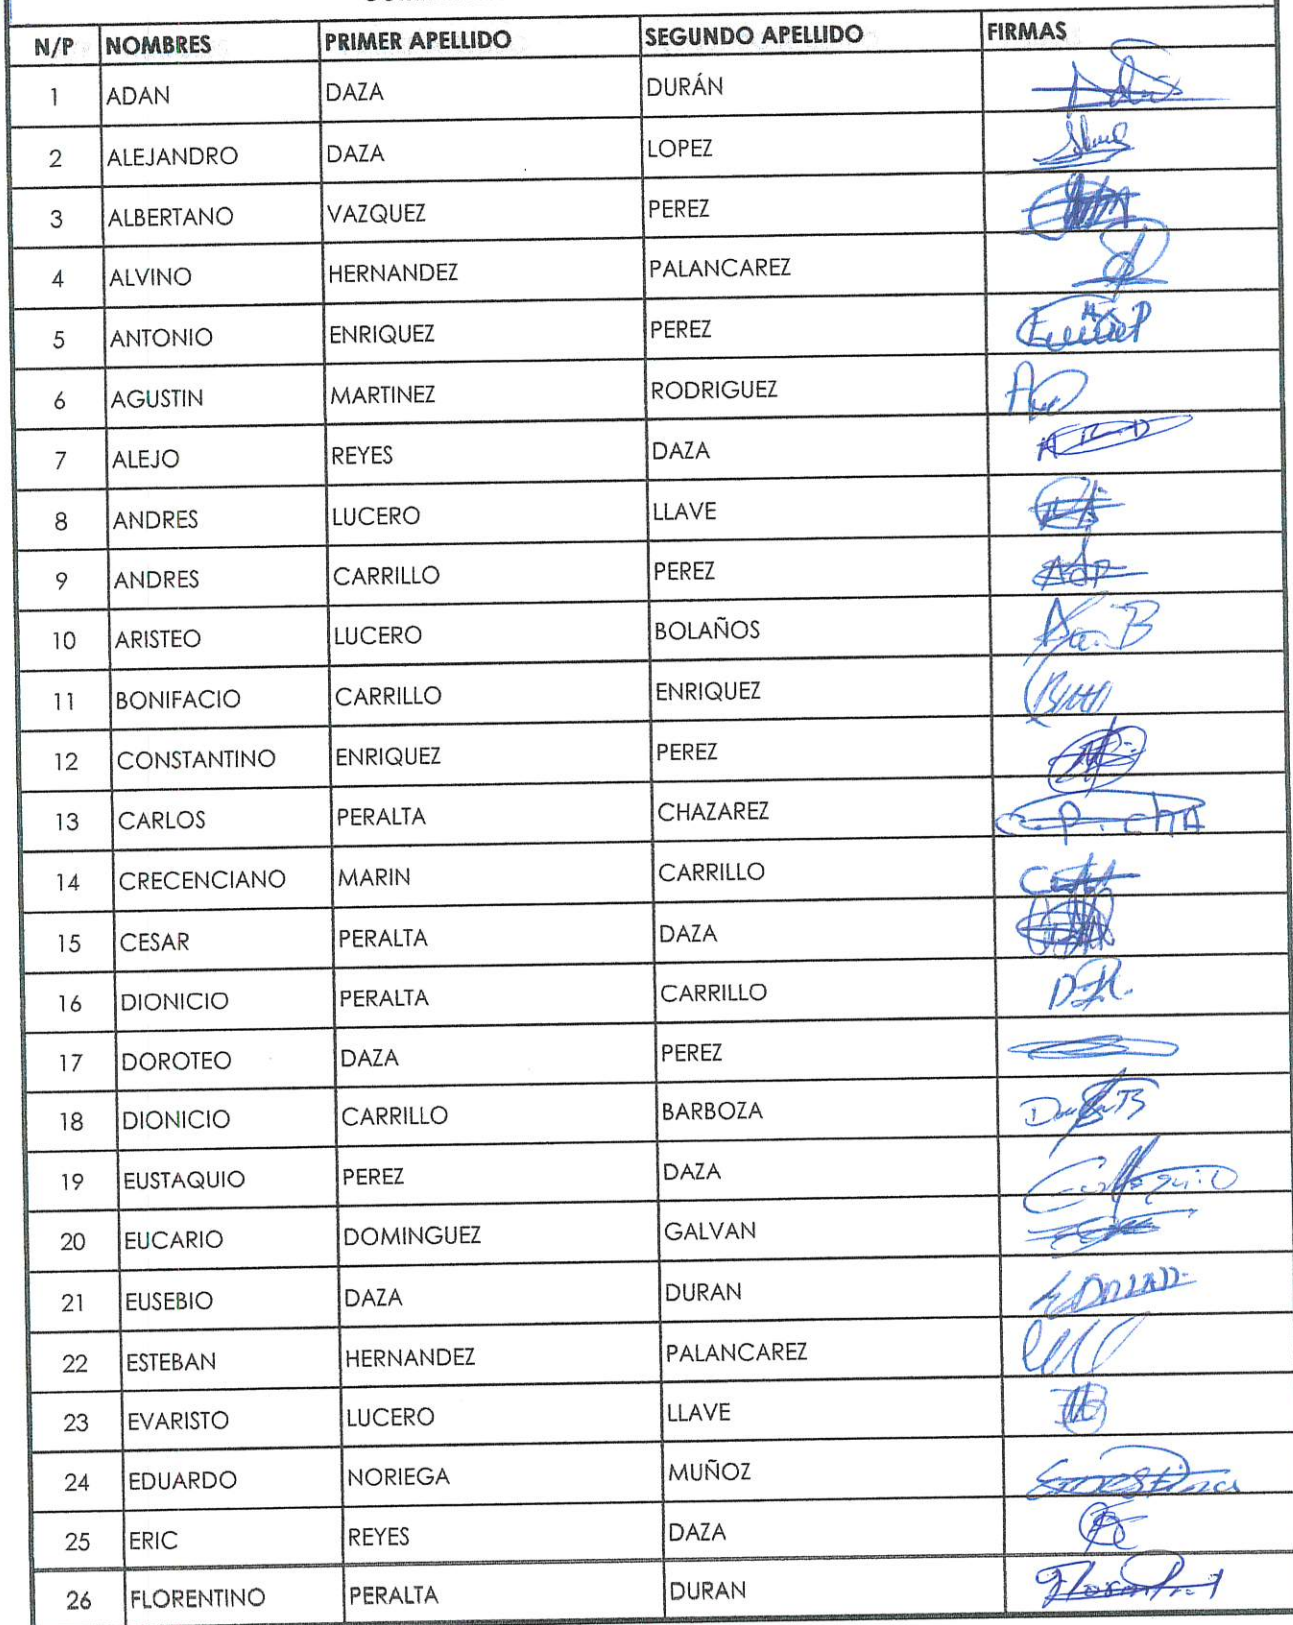 N/P NOMBRES PRIMER APELLIDO SEGUNDO APELLIDO FIRMAS
1 ADAN DAZA DURÁN
2 ALEJANDRO DAZA LOPEZ
3 ALBERTANO VAZQUEZ PEREZ
4 ALVINO HERNANDEZ PALANCAREZ
5 ANTONIO ENRIQUEZ PEREZ
6 AGUSTIN MARTINEZ RODRIGUEZ
7 ALEJO REYES DAZA
8 ANDRES LUCERO LLAVE
9 ANDRES CARRILLO PEREZ
10 ARISTEO LUCERO BOLAÑOS
11 BONIFACIO CARRILLO ENRIQUEZ
12 CONSTANTINO ENRIQUEZ PEREZ
13 CARLOS PERALTA CHAZAREZ
14 CRECENCIANO MARIN CARRILLO
15 CESAR PERALTA DAZA
16 DIONICIO PERALTA CARRILLO
17 DOROTEO DAZA PEREZ
18 DIONICIO CARRILLO BARBOZA
19 EUSTAQUIO PEREZ DAZA
20 EUCARIO DOMINGUEZ GALVAN
21 EUSEBIO DAZA DURAN
22 ESTEBAN HERNANDEZ PALANCAREZ
23 EVARISTO LUCERO LLAVE
24 EDUARDO NORIEGA MUÑOZ
25 ERIC REYES DAZA
26 FLORENTINO PERALTA DURAN